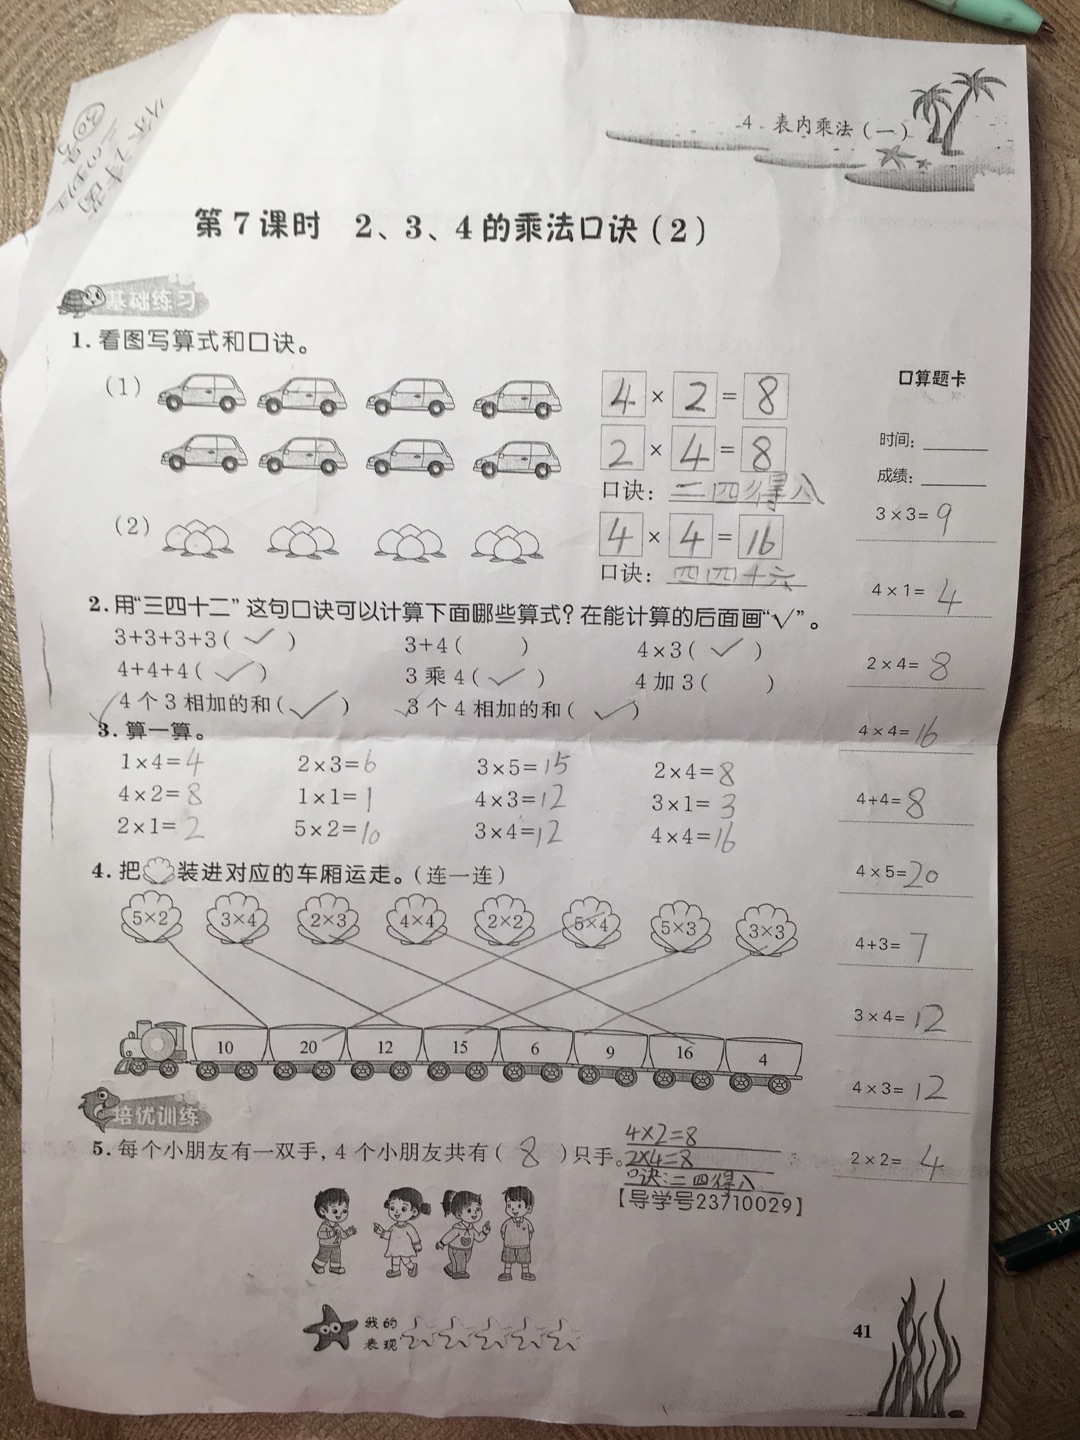 4 表内乘法(一)
第7课时 2、3、4的乘法口诀(2)
基础练习
1.看图写算式和口诀。
(1)
4×2=8
2×4=8
口诀：二四得八
(2)
4×4=16
口诀：四四十六
2.用“三四十二”这句口诀可以计算下面哪些算式？在能计算的后面画“√”。
3+3+3+3(✓) 3+4( ) 4×3(✓)
4+4+4(✓) 3乘4(✓) 4加3( )
4个3相加的和(✓) 3个4相加的和(✓)
3.算一算。
1×4=4 2×3=6 3×5=15 2×4=8
4×2=8 1×1=1 4×3=12 3×1=3
2×1=2 5×2=10 3×4=12 4×4=16
4.把装进对应的车厢运走。(连一连)
5×2 3×4 2×3 4×4 2×2 5×4 5×3 3×3
10 20 12 15 6 9 16 4
培优训练
5.每个小朋友有一双手，4个小朋友共有(8)只手。
4×2=8
2×4=8
口诀：二四得八
【导学号23710029】
我的
表现
41
口算题卡
时间：
成绩：
3×3=9
4×1=4
2×4=8
4×4=16
4+4=8
4×5=20
4+3=7
3×4=12
4×3=12
2×2=4
4H